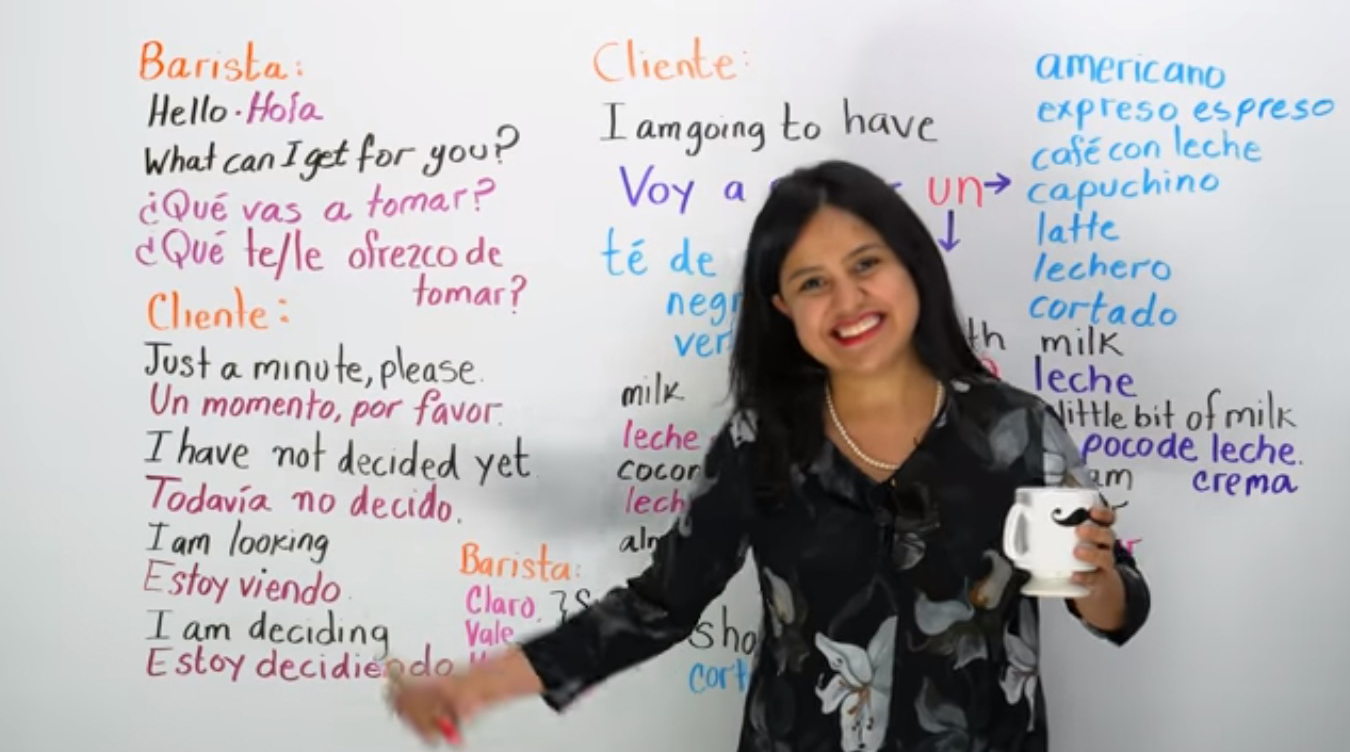 Barista:
Hello · Hola
What can I get for you?
¿Qué vas a tomar?
¿Qué te/le ofrezco de
tomar?
Cliente:
Just a minute, please.
Un momento, por favor.
I have not decided yet.
Todavía no decido.
I am looking
Estoy viendo.
I am deciding
Estoy decidiendo
Barista:
Claro.
Vale
Cliente:
I am going to have
Voy a un →
↓
té de
milk
leche
americano
expreso espreso
café con leche
capuchino
latte
lechero
cortado
milk
leche
little bit of milk
poco de leche.
crema